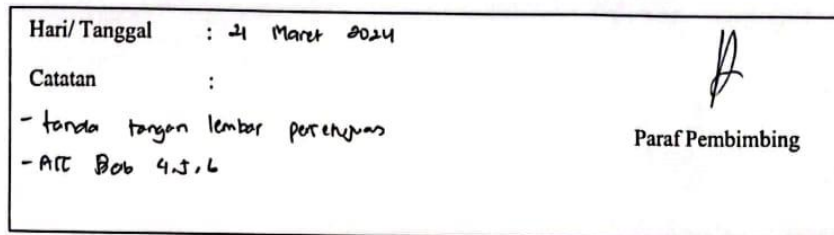 Hari/ Tanggal : 21 Maret 2024
Catatan :
- tanda tangan lembar persetujuan
- ACC Bab 4,5,6
Paraf Pembimbing